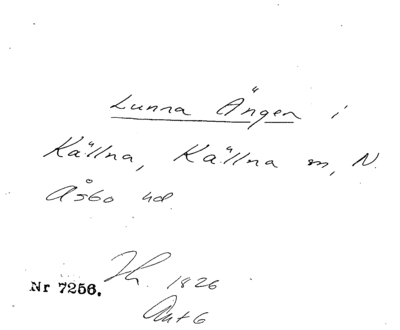 Lunna Ängen i
Källna, Källna m, N.
Åsbo hd.
Nr 7256.
1826